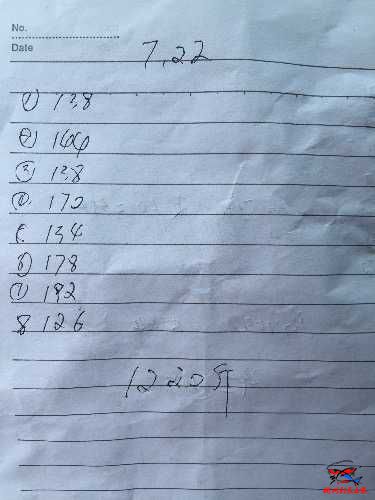 No.
Date
7.22
① 138
② 166
③ 138
④ 170
5. 134
⑥ 178
⑦ 192
8 126
1220斤